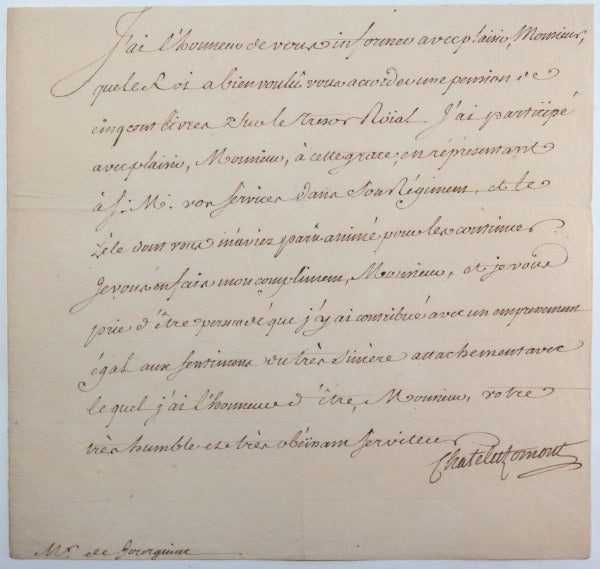 J'ai l'honneur de vous informer avec plaisir, Monsieur,
que le Roi a bien voulu vous accorder une pension de
cinq cent livres sur le tresor Roïal. J'ai participé
avec plaisir, Monsieur, à cette grace, en réprésentant
à S. M. vos services dans son Régiment, et le
zéle dont vous m'aviez parû animé pour les continuer.
Je vous en fais mon compliment, Monsieur, et je vous
prie d'être persuadé que j'y ai contribué avec un empressement
égal aux sentimens du très sincère attachement avec
lequel j'ai l'honneur d'être, Monsieur, votre
très humble et très obéïssant serviteur
Mr. de